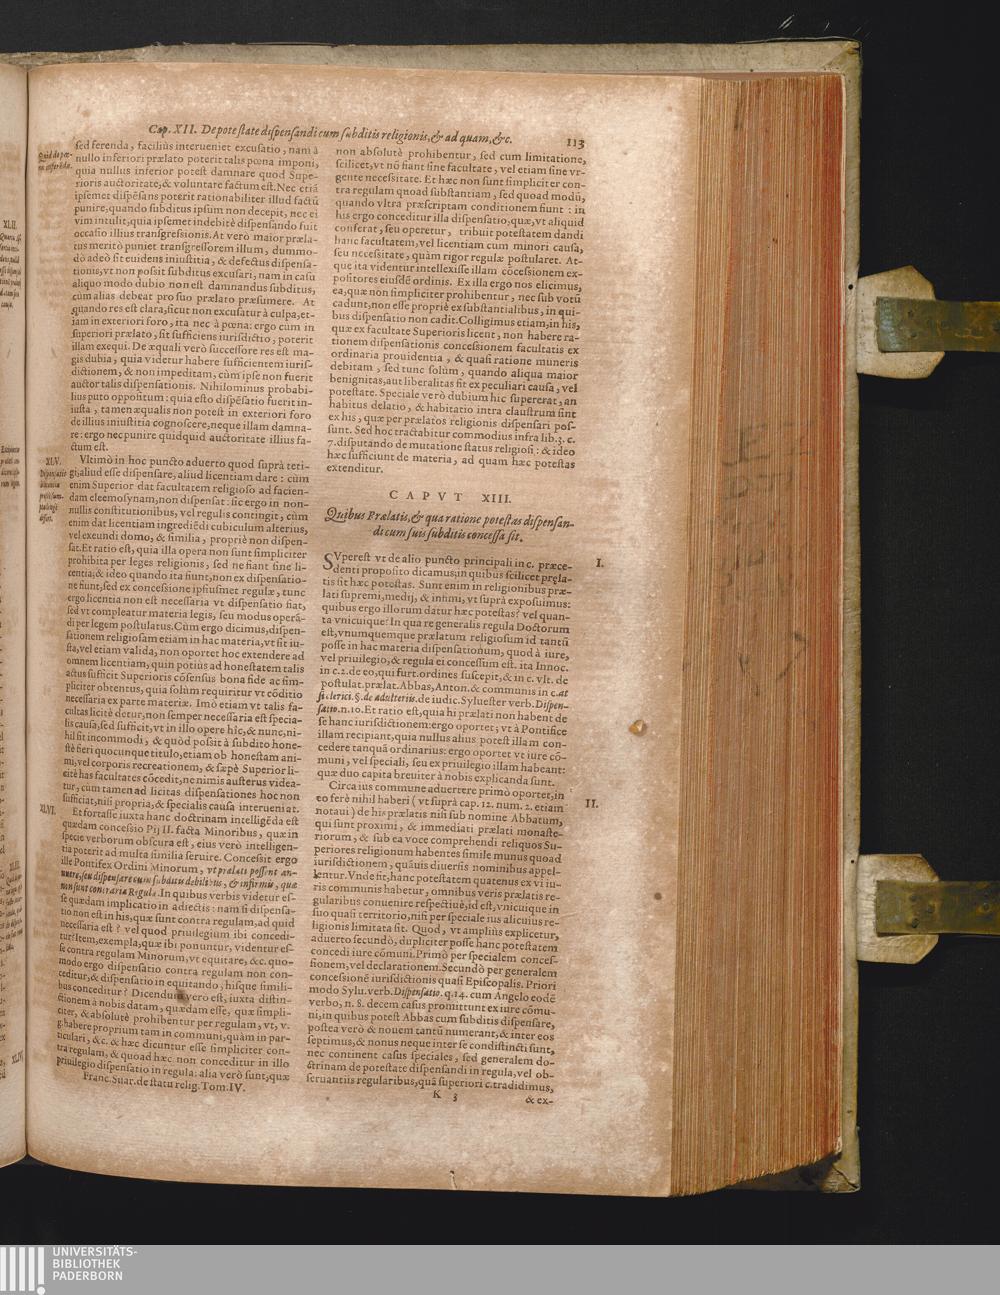 Cap. XII. De potestate dispensandi cum subditis religionis, & ad quam, &c. 113
sed ferenda, faciliùs interueniet excusatio, nam à
nullo inferiori prælato poterit talis pœna imponi,
quia nullus inferior potest damnare quod Supe-
rioris auctoritate, & voluntate factum est. Nec etiã
ipsemet dispēsans poterit rationabiliter illud factũ
punire, quando subditus ipsum non decepit, nec ei
vim intulit, quia ipsemet indebitè dispensando fuit
occasio illius transgressionis. At verò maior præla-
tus meritò puniet transgressorem illum, dummo-
dò adeò sit euidens iniustitia, & defectus dispensa-
tionis, vt non possit subditus excusari, nam in casu
aliquo modo dubio non est damnandus subditus,
cùm alias debeat pro suo prælato præsumere. At
quando res est clara, sicut non excusatur à culpa, et-
iam in exteriori foro, ita nec à pœna: ergo cùm in
superiori prælato, sit sufficiens iurisdictio, poterit
illam exequi. De æquali verò successore res est ma-
gis dubia, quia videtur habere sufficientem iuris-
dictionem, & non impeditam, cùm ipse non fuerit
auctor talis dispensationis. Nihilominus probabi-
lius puto oppositum: quia esto dispēsatio fuerit in-
iusta, tamen æqualis non potest in exteriori foro
de illius iniustitia cognoscere, neque illam damna-
re: ergo nec punire quidquid auctoritate illius fa-
ctum est.
XLV.
Vltimò in hoc puncto aduerto quod suprà teti-
gi, aliud esse dispensare, aliud licentiam dare: cùm
enim Superior dat facultatem religioso ad facien-
dam eleemosynam, non dispensat: sic ergo in non-
nullis constitutionibus, vel regulis contingit, cùm
enim dat licentiam ingrediēdi cubiculum alterius,
vel exeundi domo, & similia, propriè non dispen-
sat. Et ratio est, quia illa opera non sunt simpliciter
prohibita per leges religionis, sed ne fiant sine li-
centia; & ideo quando ita fiunt, non ex dispensatio-
ne fiunt, sed ex concessione ipsiusmet regulæ, tunc
ergo licentia non est necessaria vt dispensatio fiat,
sed vt compleatur materia legis, seu modus operā-
di per legem postulatus. Cùm ergo dicimus, dispen-
sationem religiosam etiam in hac materia, vt sit iu-
sta, vel etiam valida, non oportet hoc extendere ad
omnem licentiam, quin potiùs ad honestatem talis
actus sufficit Superioris cōsensus bona fide ac sim-
pliciter obtentus, quia solùm requiritur vt cōditio
necessaria ex parte materiæ. Imò etiam vt talis fa-
cultas licitè detur, non semper necessaria est specia-
lis causa, sed sufficit, vt in illo opere hîc, & nunc, ni-
hil sit incommodi, & quòd possit à subdito hone-
stè fieri quocunque titulo, etiam ob honestam ani-
mi, vel corporis recreationem, & sæpè Superior li-
citè has facultates cōcedit, ne nimis austerus videa-
tur, cum tamen ad licitas dispensationes hoc non
sufficiat, nisi propria, & specialis causa interueniat.
XLVI.
Et fortasse iuxta hanc doctrinam intelligēda est
quædam concessio Pij II. facta Minoribus, quæ in
specie verborum obscura est, eius verò intelligen-
tia poterit ad multa similia seruire. Concessit ergo
ille Pontifex Ordini Minorum, vt prælati possint an-
nuere, seu dispensare cum subditis debilibus, & infirmis, quæ
non sunt contraria Regulæ. In quibus verbis videtur es-
se quædam implicatio in adiectis: nam si dispensa-
tio non est in his, quæ sunt contra regulam, ad quid
necessaria est? vel quod priuilegium ibi concedi-
tur? Item, exempla, quæ ibi ponuntur, videntur es-
se contra regulam Minorum, vt equitare, &c. quo-
modo ergo dispensatio contra regulam non con-
ceditur, & dispensatio in equitando, hisque simili-
bus conceditur? Dicendum vero est, iuxta distin-
ctionem à nobis datam, quædam esse, quæ simpli-
citer, & absolutè prohibentur per regulam, vt, v.
g. habere proprium tam in communi, quàm in par-
ticulari, &c. & hæc dicuntur esse simpliciter con-
tra regulam, & quoad hæc non conceditur in illo
priuilegio dispensatio in regula: alia verò sunt, quæ
Franc. Suar. de statu relig. Tom. IV.
non absolutè prohibentur, sed cum limitatione,
scilicet, vt nō fiant sine facultate, vel etiam sine vr-
gente necessitate. Et hæc non sunt simpliciter con-
tra regulam quoad substantiam, sed quoad modū,
quando vltra præscriptam conditionem fiunt: in
his ergo conceditur illa dispensatio, quæ, vt aliquid
conferat, seu operetur, tribuit potestatem dandi
hanc facultatem, vel licentiam cum minori causa,
seu necessitate, quàm rigor regulæ postularet. At-
que ita videntur intellexisse illam cōcessionem ex-
positores eiusdē ordinis. Ex illa ergo nos elicimus,
ea, quæ non simpliciter prohibentur, nec sub votū
cadunt, non esse propriè ex substantialibus, in qui-
bus dispensatio non cadit. Colligimus etiam, in his,
quæ ex facultate Superioris licent, non habere ra-
tionem dispensationis concessionem facultatis ex
ordinaria prouidentia, & quasi ratione muneris
debitam, sed tunc solùm, quando aliqua maior
benignitas, aut liberalitas fit ex peculiari causa, vel
potestate. Speciale verò dubium hic supererat, an
habitus delatio, & habitatio intra claustrum sint
ex his, quæ per prælatos religionis dispensari pos-
sunt. Sed hoc tractabitur commodius infra lib. 3. c.
7. disputando de mutatione status religiosi: & ideo
hæc sufficiunt de materia, ad quam hæc potestas
extenditur.
CAPVT XIII.
Quibus Prælatis, & qua ratione potestas dispensan-
di cum suis subditis concessa sit.
I.
SVperest vt de alio puncto principali in c. præce-
denti proposito dicamus, in quibus scilicet prela-
tis sit hæc potestas. Sunt enim in religionibus præ-
lati supremi, medij, & infimi, vt suprà exposuimus:
quibus ergo illorum datur hæc potestas? vel quan-
ta vnicuique? In qua re generalis regula Doctorum
est, vnumquemque prælatum religiosum id tantū
posse in hac materia dispensationum, quod à iure,
vel priuilegio, & regula ei concessum est. ita Innoc.
in c. 2. de eo, qui furt. ordines suscepit, & in c. vlt. de
postulat. prælat. Abbas, Anton. & communis in c. at
si clerici. §. de adulteriis. de iudic. Syluester verb. Dispen-
satio. n. 10. Et ratio est, quia hi prælati non habent de
se hanc iurisdictionem: ergo oportet; vt à Pontifice
illam recipiant, quia nullus alius potest illam con-
cedere tanquā ordinarius: ergo oportet vt iure cō-
muni, vel speciali, seu ex priuilegio illam habeant:
quæ duo capita breuiter à nobis explicanda sunt.
II.
Circa ius commune aduertere primò oportet, in
eo ferè nihil haberi (vt suprà cap. 12. num. 2. etiam
notaui) de his prælatis nisi sub nomine Abbatum,
qui sunt proximi, & immediati prælati monaste-
riorum, & sub ea voce comprehendi reliquos Su-
periores religionum habentes simile munus quoad
iurisdictionem, quāuis diuersis nominibus appel-
lentur. Vnde fit, hanc potestatem quatenus ex vi iu-
ris communis habetur, omnibus veris prælatis re-
gularibus conuenire respectiuè, id est, vnicuique in
suo quasi territorio, nisi per speciale ius alicuius re-
ligionis limitata sit. Quod, vt ampliùs explicetur,
aduerto secundò, dupliciter posse hanc potestatem
concedi iure cōmuni. Primò per specialem conces-
sionem, vel declarationem. Secundò per generalem
concessionē iurisdictionis quasi Episcopalis. Priori
modo Sylu. verb. Dispensatio. q. 14. cum Angelo eodē
verbo, n. 8. decem casus promittunt ex iure cōmu-
ni, in quibus potest Abbas cum subditis dispensare,
postea verò & nouem tantū numerant, & inter eos
septimus, & nonus neque inter se condistincti sunt,
nec continent casus speciales, sed generalem do-
ctrinam de potestate dispensandi in regula, vel ob-
seruantiis regularibus, quā superiori c. tradidimus,
K 3 & ex-
UNIVERSITÄTS-
BIBLIOTHEK
PADERBORN